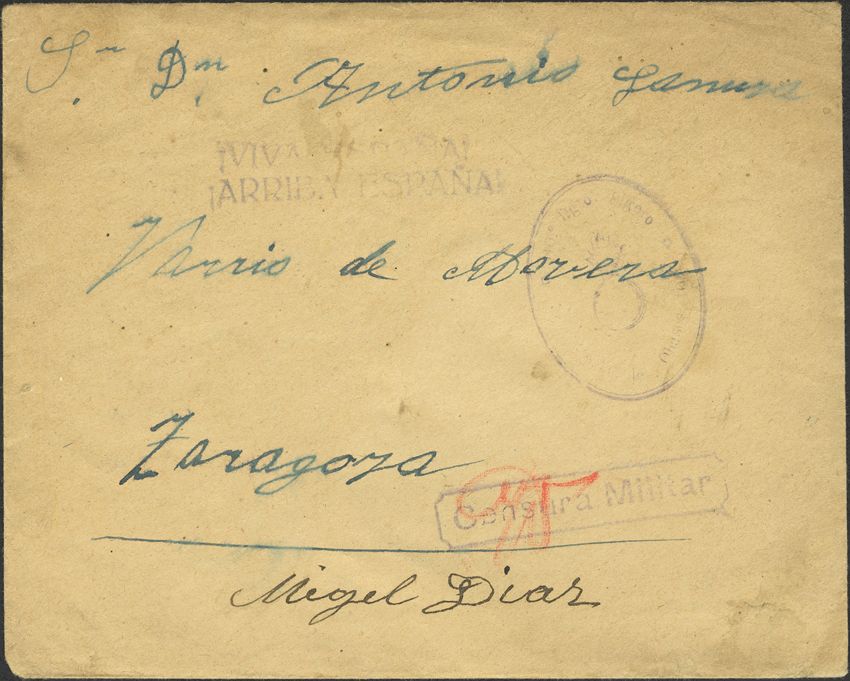 Sr. Dn. Antonio
¡ARRIBA ESPAÑA!
Varrio de Movera
Zaragoza
Censura Militar
Migel Diaz